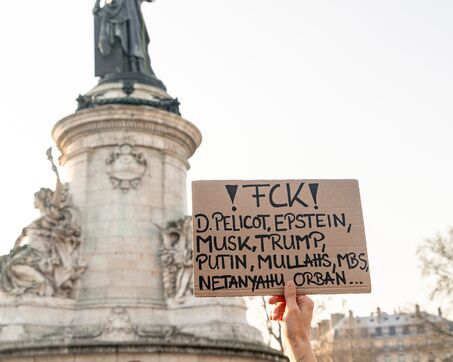 ! FCK!
D. PELICOT, EPSTEIN,
MUSK, TRUMP,
PUTIN, MULLAHS, MBS,
NETANYAHU ORBAN...